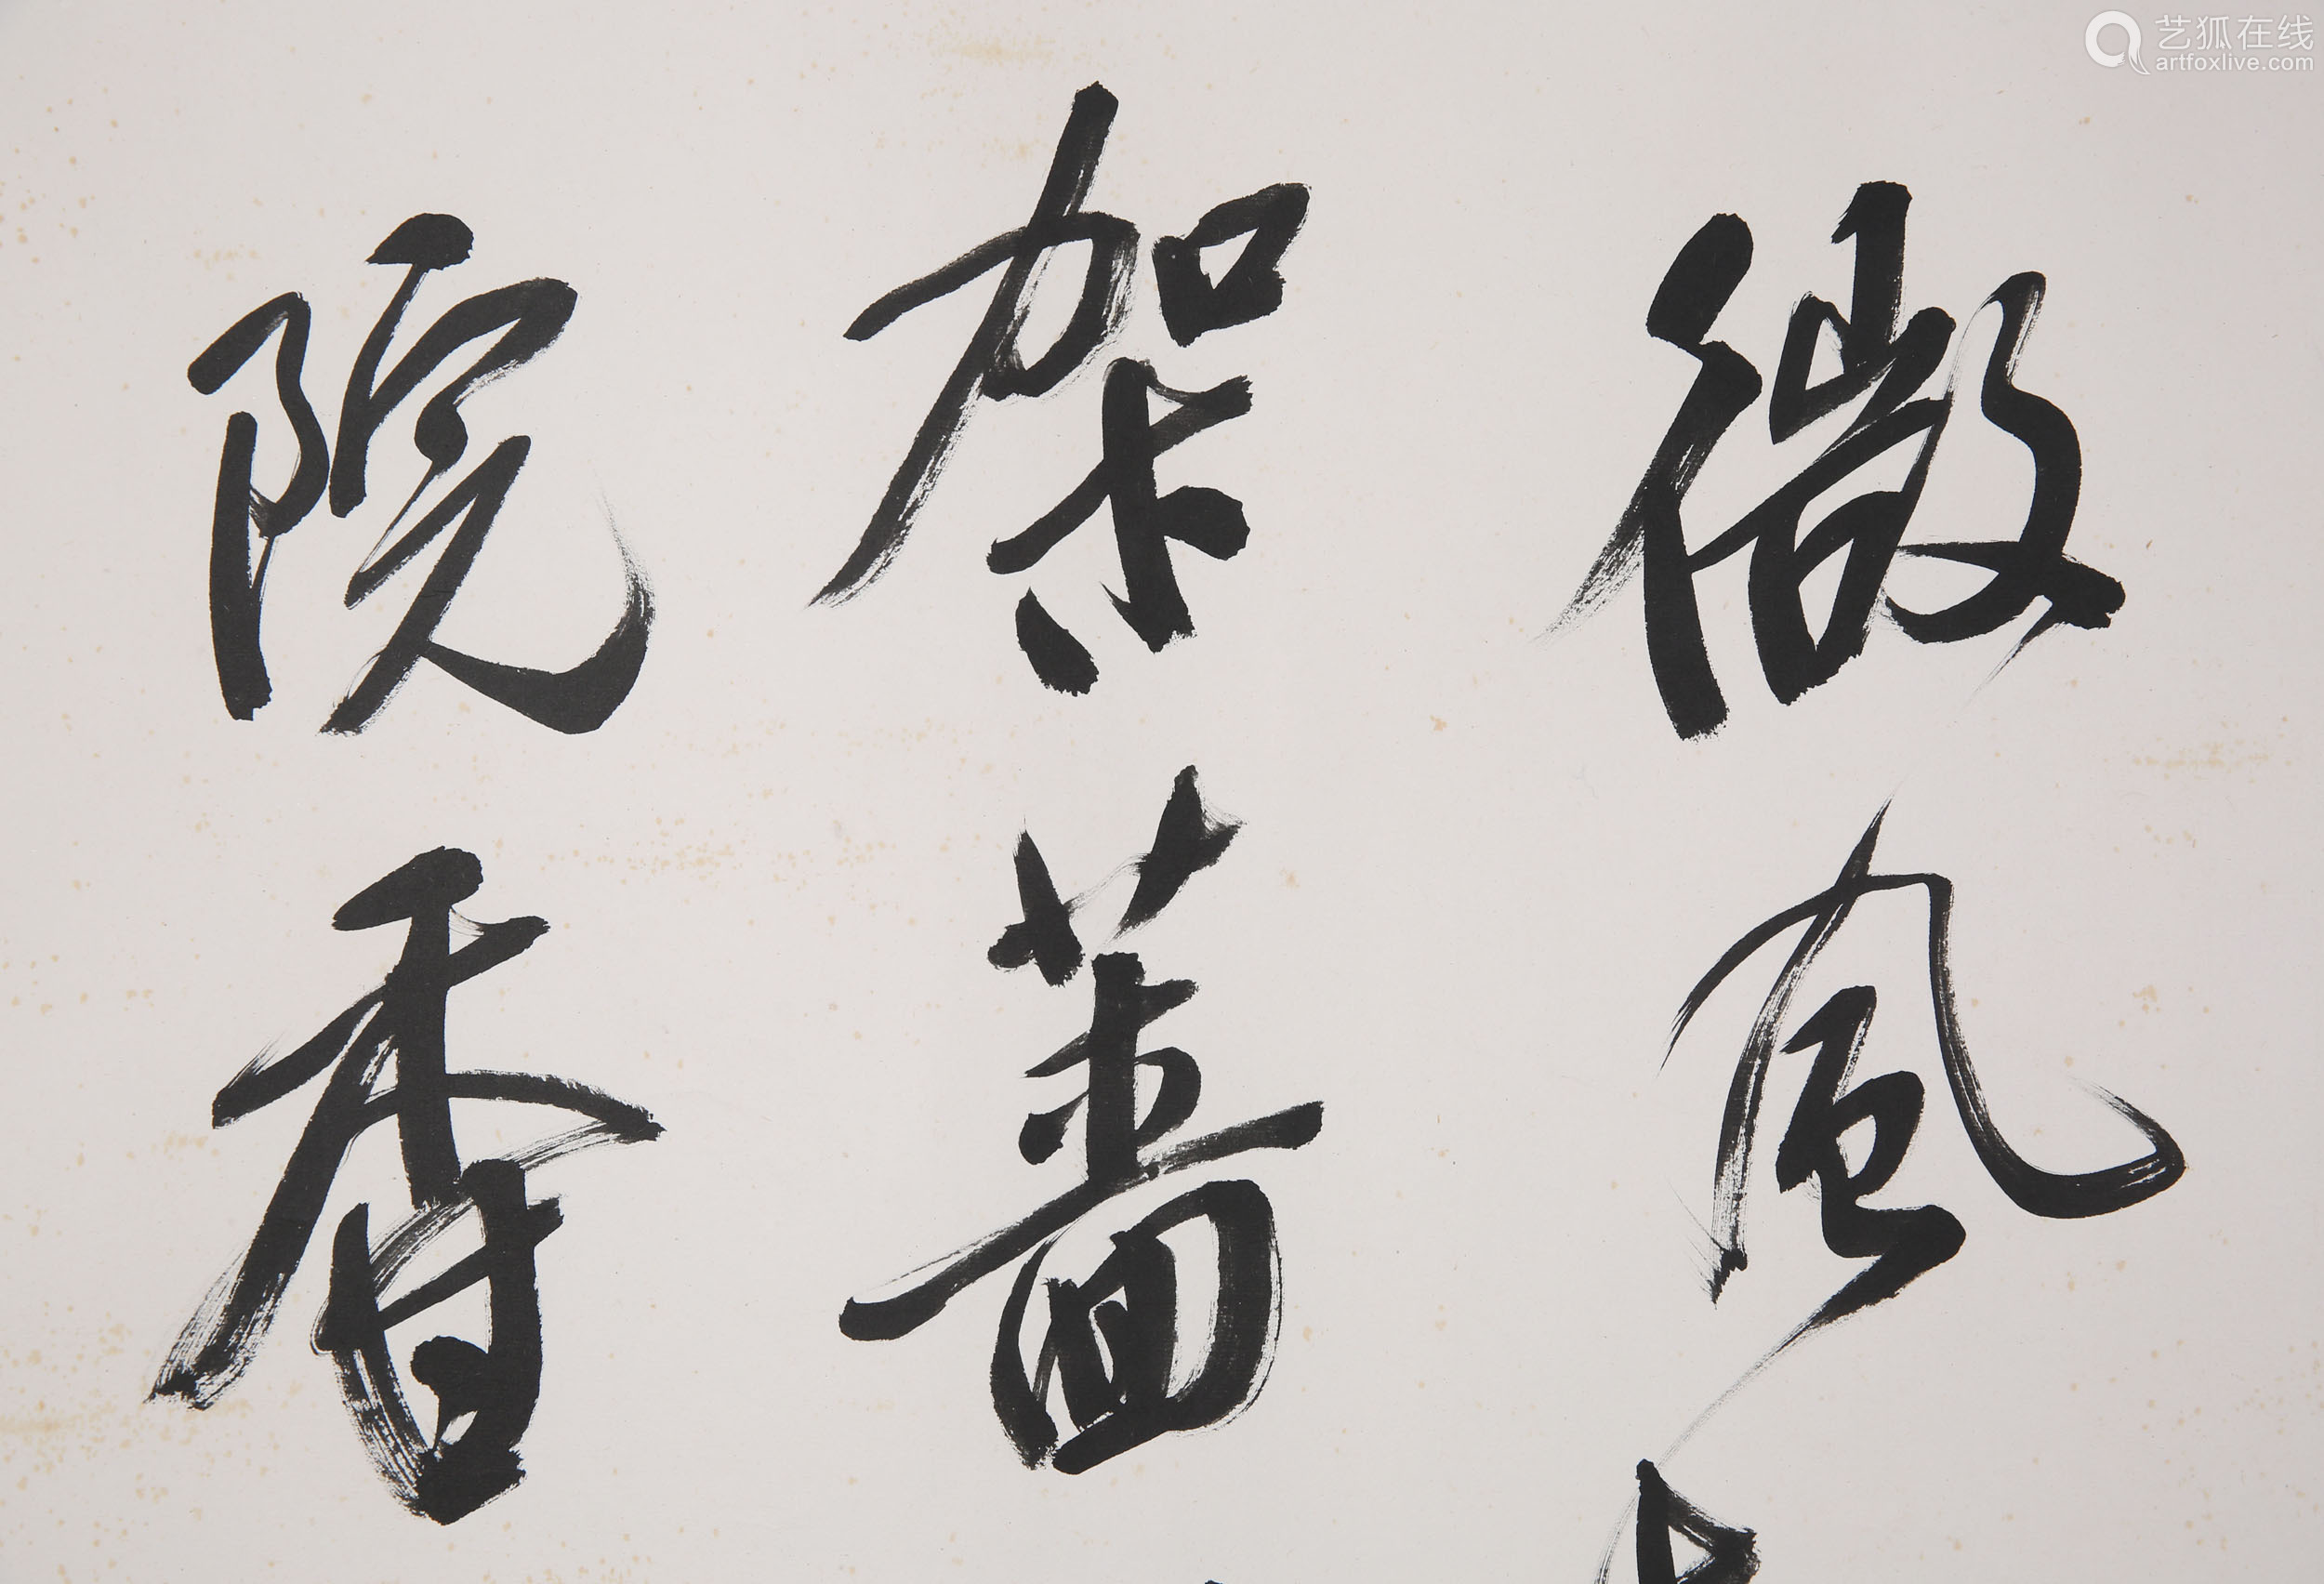 微風
架薔
院香
艺狐在线
artfoxlive.com